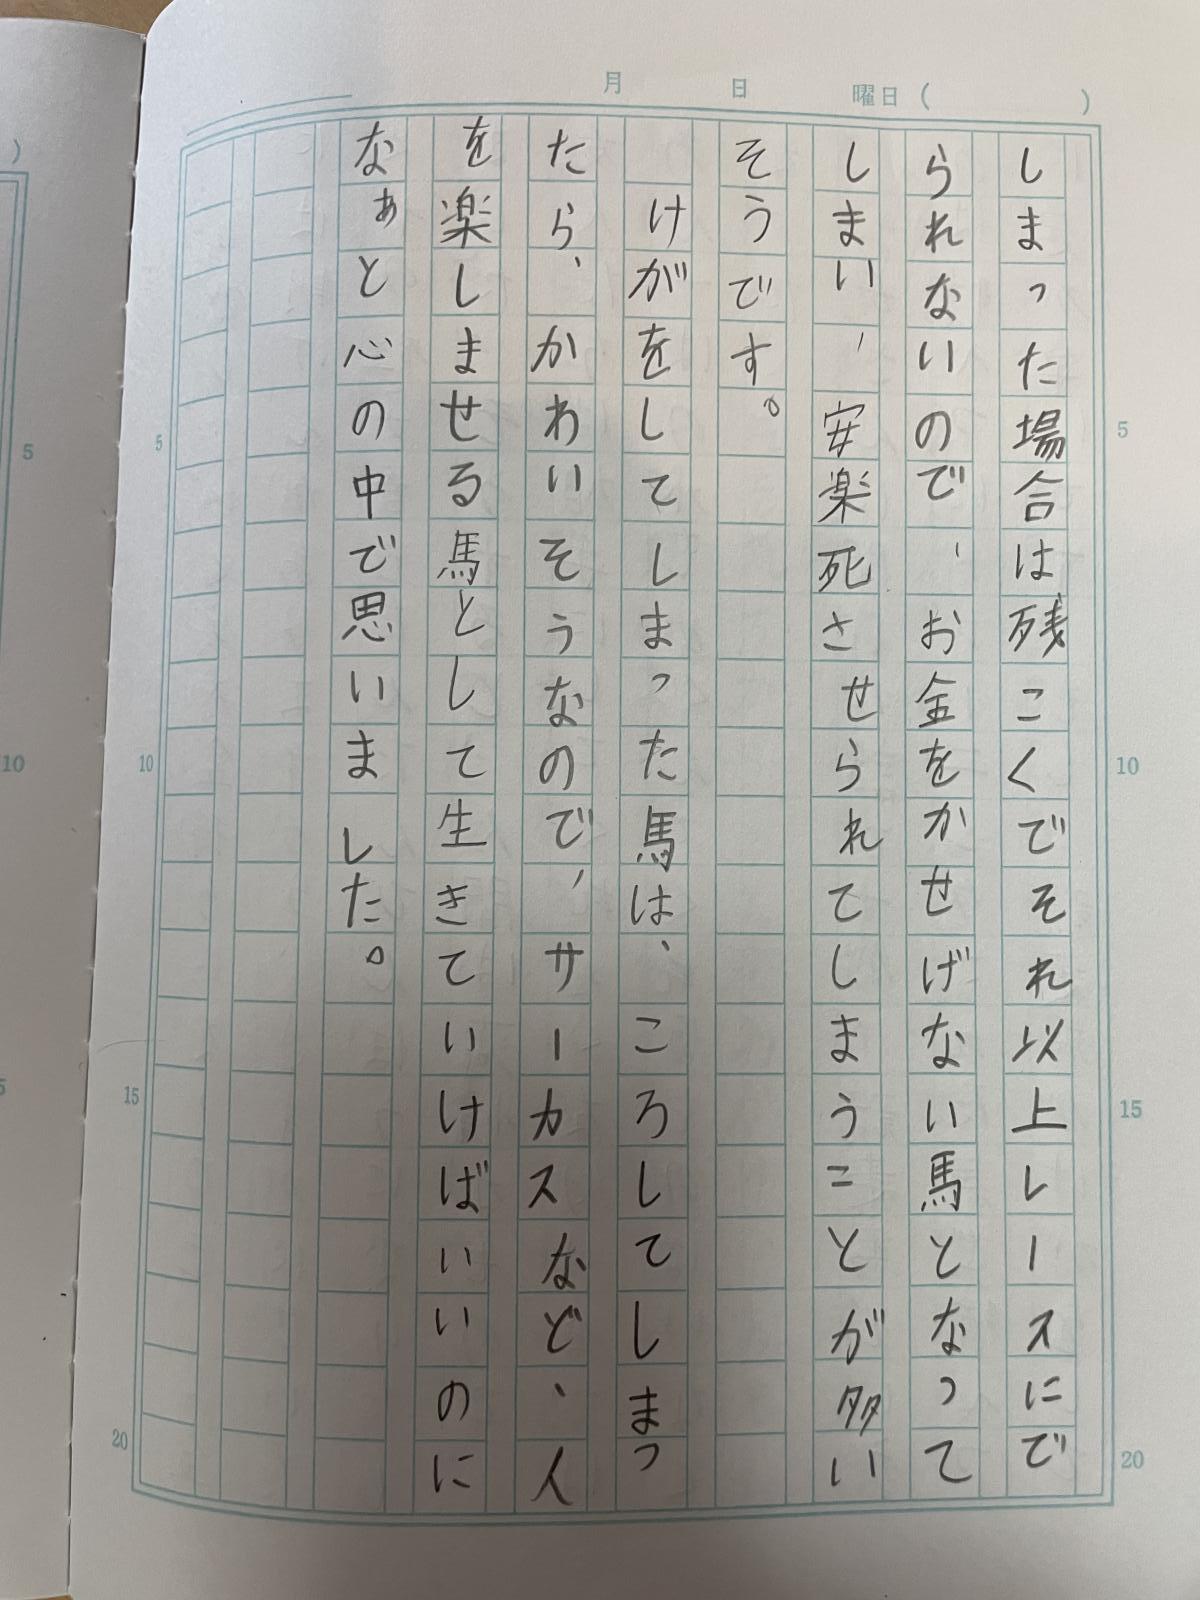 月 日 曜日( )
しまった場合は残こくでそれ以上レースにで
られないので、お金をかせげない馬となって
しまい、安楽死させられてしまうことが多い
そうです。
けがをしてしまった馬は、ころしてしまっ
たら、かわいそうなので、サーカスなど、人
を楽しませる馬として生きていけばいいのに
なぁと心の中で思いました。
5
10
15
20
5
10
15
20
)
5
10
5